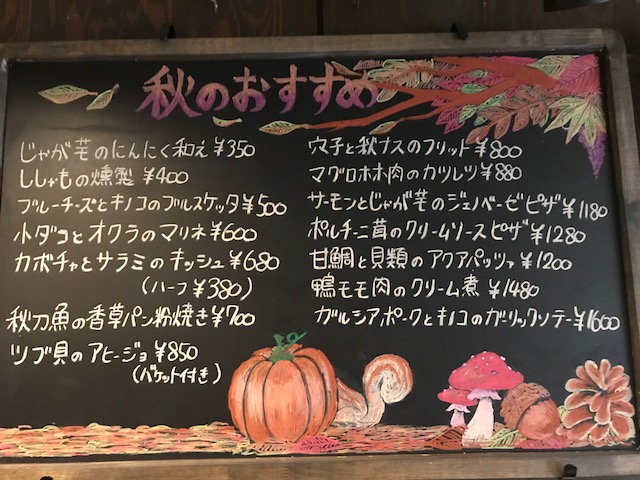 秋のおすすめ
じゃが芋のにんにく和え ¥350
ししゃもの燻製 ¥400
ブルーチーズとキノコのブルスケッタ ¥500
水ダコとオクラのマリネ ¥600
カボチャとサラミのキッシュ ¥680
(ハーフ ¥380)
秋刀魚の香草パン粉焼き ¥700
ツブ貝のアヒージョ ¥850
(バケット付き)
穴子と秋ナスのフリット ¥800
マグロホホ肉のカツレツ ¥880
サーモンとじゃが芋のジェノベーゼピザ ¥1180
ポルチーニ茸のクリームソースピザ ¥1280
甘鯛と貝類のアクアパッツァ ¥1200
鴨モモ肉のクリーム煮 ¥1480
ガルシアポークとキノコのガーリックソテー ¥1600